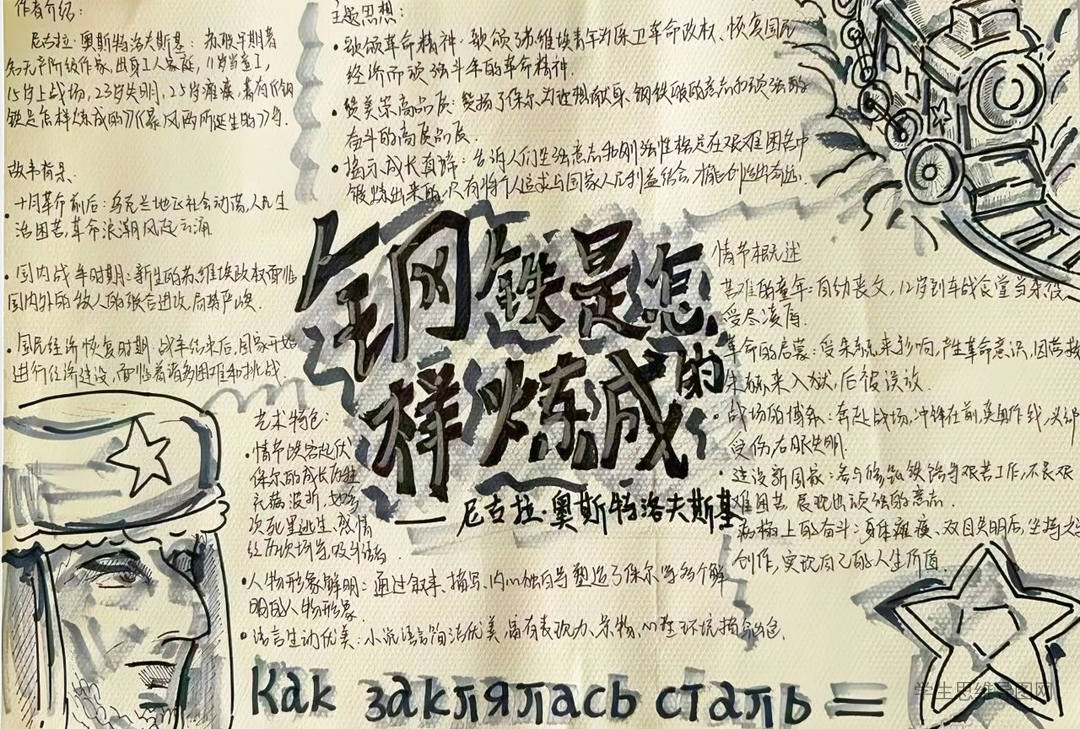 作者介绍：
尼古拉·奥斯特洛夫斯基：苏联早期著
名无产阶级作家，出身工人家庭，11岁当童工，
15岁上战场，23岁失明，25岁瘫痪，著有《钢
铁是怎样炼成的》《暴风雨所诞生的》等。
故事背景：
·十月革命前后：乌克兰地区社会动荡，人民生
活困苦，革命浪潮风起云涌
·国内战争时期：新生的苏维埃政权面临
国内外的敌人的联合进攻，局势严峻．
·国民经济恢复时期 战争结束后，国家开始
进行经济建设，面临着诸多困难和挑战．
主题思想：
·歌颂革命精神．歌颂了苏维埃青年为保卫革命政权、恢复国民
经济而顽强斗争的革命精神．
·赞美崇高品质：赞扬了保尔为理想献身、钢铁般的意志和顽强的
奋斗的高贵品质．
·揭示成长真谛：告诉人们坚强意志和刚强性格是在艰难困苦中
锻炼出来的，只有将个人追求与国家人民利益结合，才能创造出奇迹．
钢铁是怎
样炼成的
——尼古拉·奥斯特洛夫斯基
情节概述
苦难的童年：自幼丧父，12岁到车站食堂当杂役，
受尽凌辱．
革命的启蒙：受朱赫来影响，产生革命意识，因营救
朱赫来入狱，后被误放．
·战场的搏杀：奔赴战场，冲锋在前，英勇作战，
受伤右眼失明．
·建设新国家：参与修筑铁路等艰苦工作，不畏艰
难困苦 展现出顽强的意志．
病榻上的奋斗：身体瘫痪、双目失明后，坚持
创作，实现自己的人生价值．
艺术特色：
·情节跌宕起伏
保尔的成长历程
充满波折，如多
次死里逃生、感情
经历
·人物形象鲜明：通过叙事、描写、内心独白等塑造了保尔等多个鲜
明的人物形象．
·语言生动优美：小说语言简洁优美，富有表现力，景物、心理、环境描写出色．
Как заклялась сталь
学生思维导图网